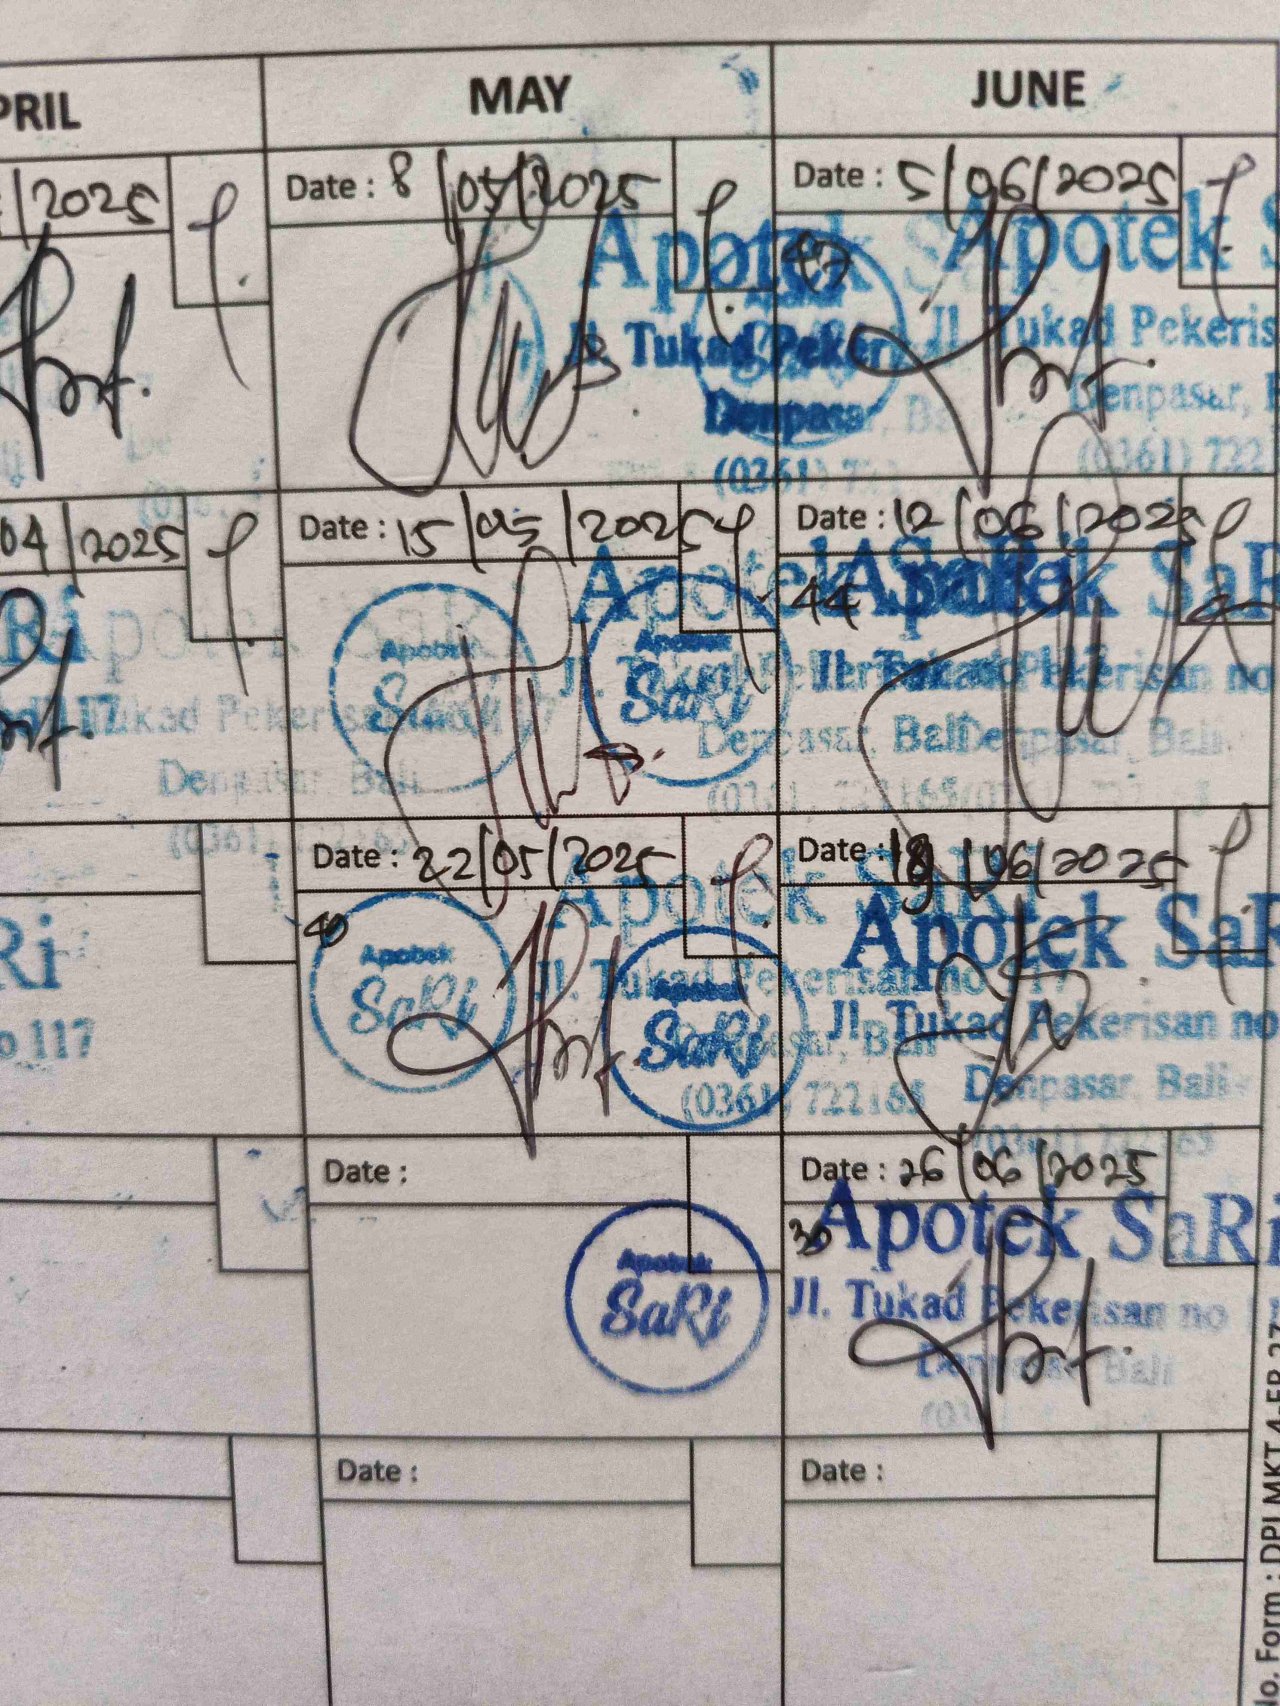 PRIL
MAY
JUNE
/2025
Date : 8/05/2025
Date : 5/06/2025
Apotek
Apotek S
47
Apotek
SaRi
Jl. Tukad Pekeris
Jl. Tukad Pekeris
Denpasar, Ba
Denpasar, B
(0361) 722
(0361) 722
04/2025
Date : 15/05/2025
Date : 12/06/2025
Ri
Apotek SaRi
Apotek SaRi
Apotek SaR
44
Apotek
SaRi
Apotek
SaRi
117
Tukad Pekerisan no 117
Jl. Tukad Pekerisan no
Jl. Tukad Pekerisan no
Denpasar, Bali
Denpasar, Bali
Denpasar, Bali
(0361) 722165
(0361) 722165
Date : 22/05/2025
Date : 19/06/2025
Ri
40
Apotek SaRi
Apotek SaR
Apotek
SaRi
Apotek
SaRi
o 117
Jl. Tukad Pekerisan no 117
Jl. Tukad Pekerisan no
Denpasar, Bali
Denpasar, Bali
(0361) 722165
(0361) 722165
Date :
Date : 26/06/2025
30
Apotek SaRi
Apotek
SaRi
Jl. Tukad Pekerisan no
Denpasar, Bali
(036
Date :
Date :
No. Form : DPI.MKT.4-FR.27